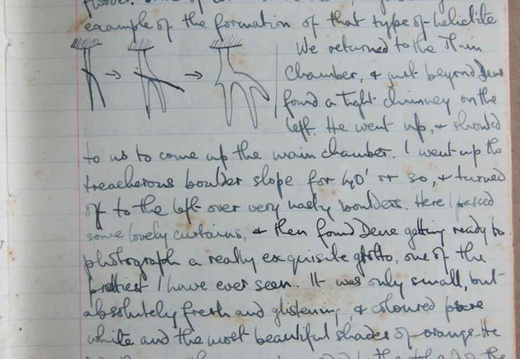 example of the formation of that type of helictite
We returned to the
chamber, & just beyond Dene
found a tight chimney on the
left. He went up, & shouted
to us to come up the main chamber. I went up the
treacherous boulder slope for 40' or so, & turned
off to the left over very nasty boulders. Here I passed
some lovely curtains, & then found Dene getting ready to
photograph a really exquisite grotto, one of the
prettiest I have ever seen. It was only small, but
absolutely fresh and glistening & coloured pure
white and the most beautiful shades of orange. He